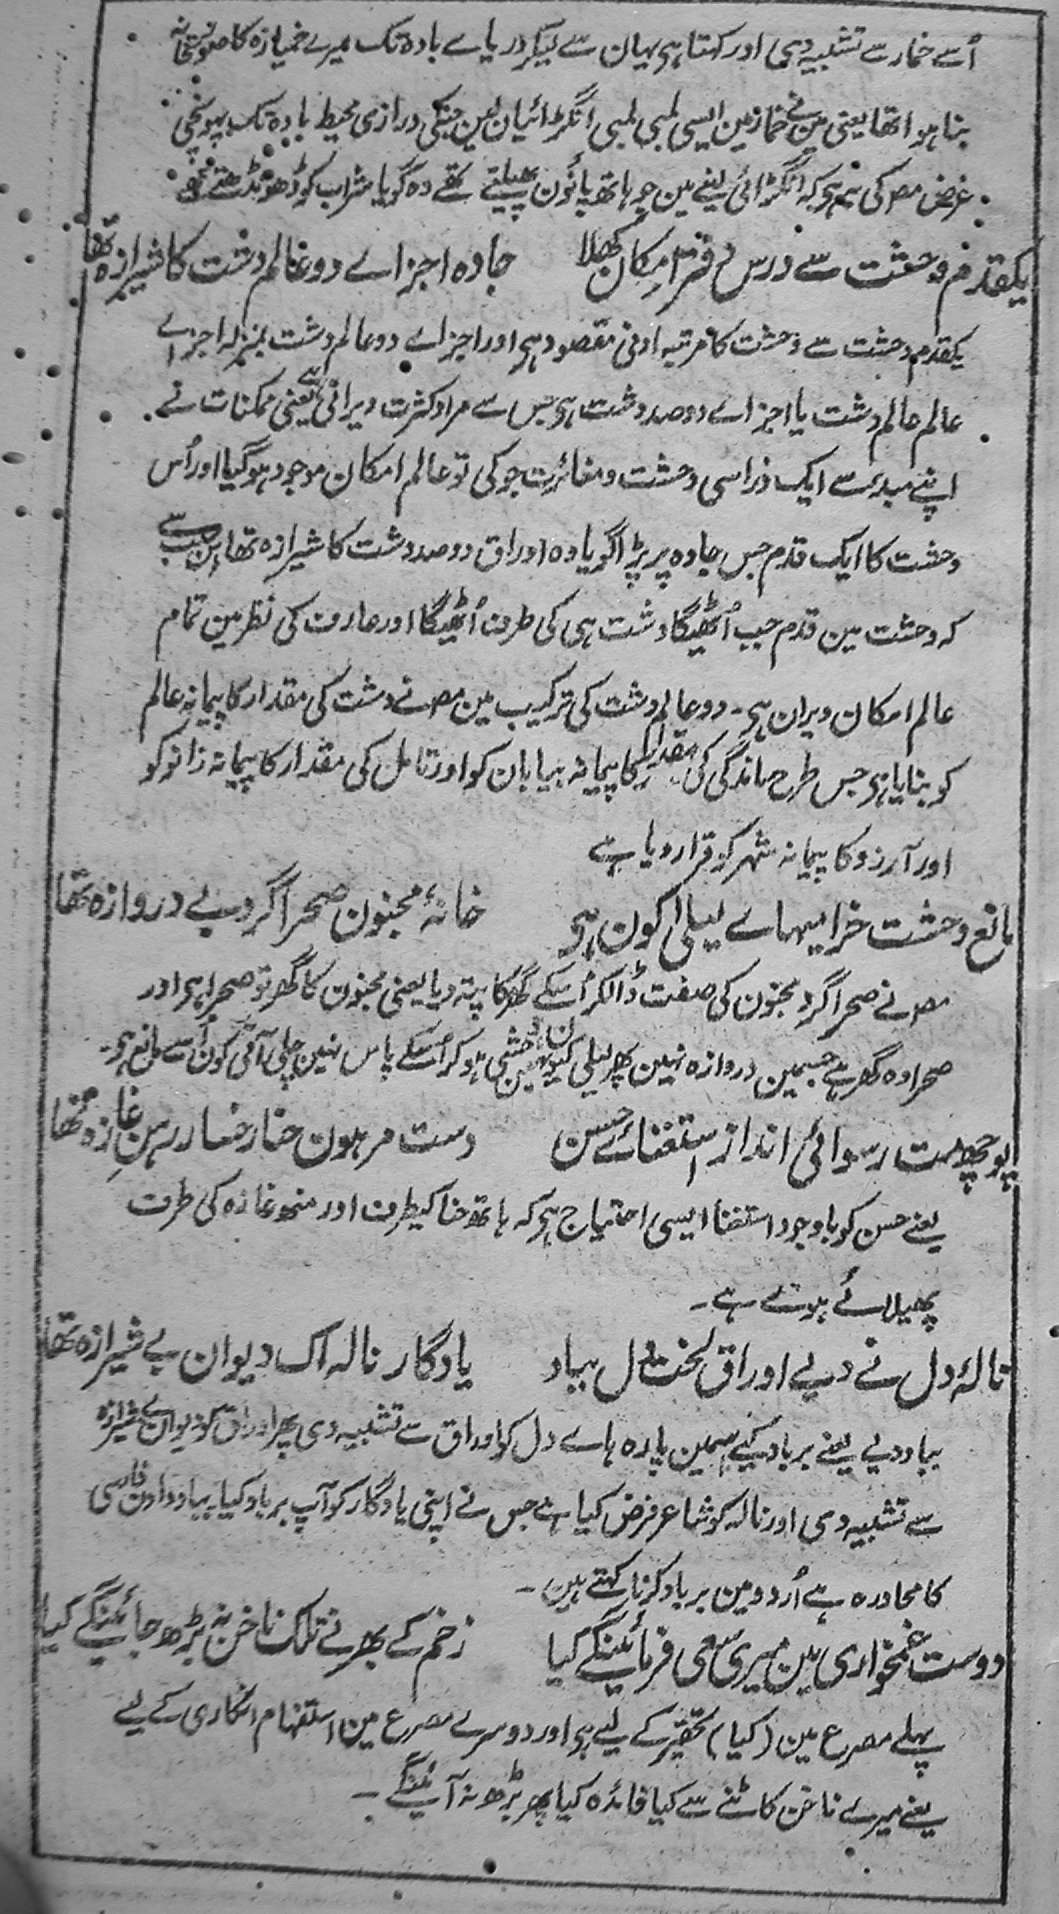 اُسے خمار سے تشبیہ دی اور کہتا ہی یہان سے لیکر دریاے بادہ تک میرے خمیازہ کا صورتخانہ
بنا ہوا تھا یعنی مین نے خمار مین ایسی لمبی لمبی انگڑائیان لین جنکی درازی محیط بادہ تک پہونچی
غرض مصؔ کی یہ ہی کہ انگڑائی لینے مین جو ہاتھ پاؤن پھیلتے تھے وہ گویا شراب کو ڈھونڈھتے تھے
یکقدم وحشت سے درس دفتر امکان کھلا جادہ اجزاے دو عالم دشت کا شیرازہ تھا
یکقدم وحشت سے وحشت کا مرتبہ ادنی مقصود ہی اور اجزاے دو عالم دشت بمنزلہ اجزاے
عالم عالم دشت یا اجزاے دوصد دشت ہی جس سے مراد کثرت ویرانی ہے یعنی ممکنات نے
اپنے مبدء سے ایک ذرا سی وحشت و مغائرت جو کی تو عالم امکان موجود ہوگیا اور اُس
وحشت کا ایک قدم جس جادہ پر پڑا گویا وہ اوراق دوصد دشت کا شیرازہ تھا اس سبب سے
کہ وحشت مین قدم جب اُٹھیگا دشت ہی کی طرف اُٹھیگا اور عارف کی نظر مین تمام
عالم امکان ویران ہی۔ دو عالم دشت کی ترکیب مین مصؔ نے دشت کی مقدار کا پیمانہ عالم
کو بنایا ہی جس طرح ماندگی کی مقدار کا پیمانہ بیابان کو اور تامل کی مقدار کا پیمانہ زانو کو
اور آرزو کا پیمانہ شہر کو قرار دیا ہے
مانع وحشت خرامیہاے لیلیٰ کون ہی خانۂ مجنون صحرا گرد بے دروازہ تھا
مصؔ نے صحرا گرد مجنون کی صفت ڈالکر اُسکے گھر کا پتہ دیا یعنی مجنون کا گھر تو صحرا ہی اور
صحرا وہ گھر ہے جسمین دروازہ نہین پھر لیلی کیون نہین وحشی ہو کر اُسکے پاس نہین چلی آتی کون اُسے مانع ہی۔
پوچھ مت رسوائی انداز استغنائے حسن دست مرہون حنا رخسار رہن غازہ تھا
یعنے حسن کو باوجود استغنا ایسی احتیاج ہی کہ ہاتھ حنا کیطرف اور منھ غازہ کی طرف
پھیلائے ہوئے ہے۔
نالۂ دل نے دیے اوراق لخت دل بباد یادگار نالہ اک دیوان بے شیرازہ تھا
بباد دیے یعنے برباد کیے اسمین پارہ ہاے دل کو اوراق سے تشبیہ دی پھر اوراق کو دیوان بے شیرازہ
سے تشبیہ دی اور نالہ کو شاعر فرض کیا ہے جس نے اپنی یادگار کو آپ برباد کیا۔ بباد دادن فارسی
کا محاورہ ہے اُردو مین برباد کرنا کہتے ہین۔
دوست غمخواری مین میری سعی فرمائینگے کیا زخم کے بھرنے تلک ناخن نہ بڑھ جائینگے کیا
پہلے مصرع مین (کیا) تحقیر کے لیے ہی اور دوسرے مصرع مین استفہام انکاری کے لیے
یعنے میرے ناخن کاٹنے سے کیا فائدہ کیا پھر بڑھ نہ آئینگے۔